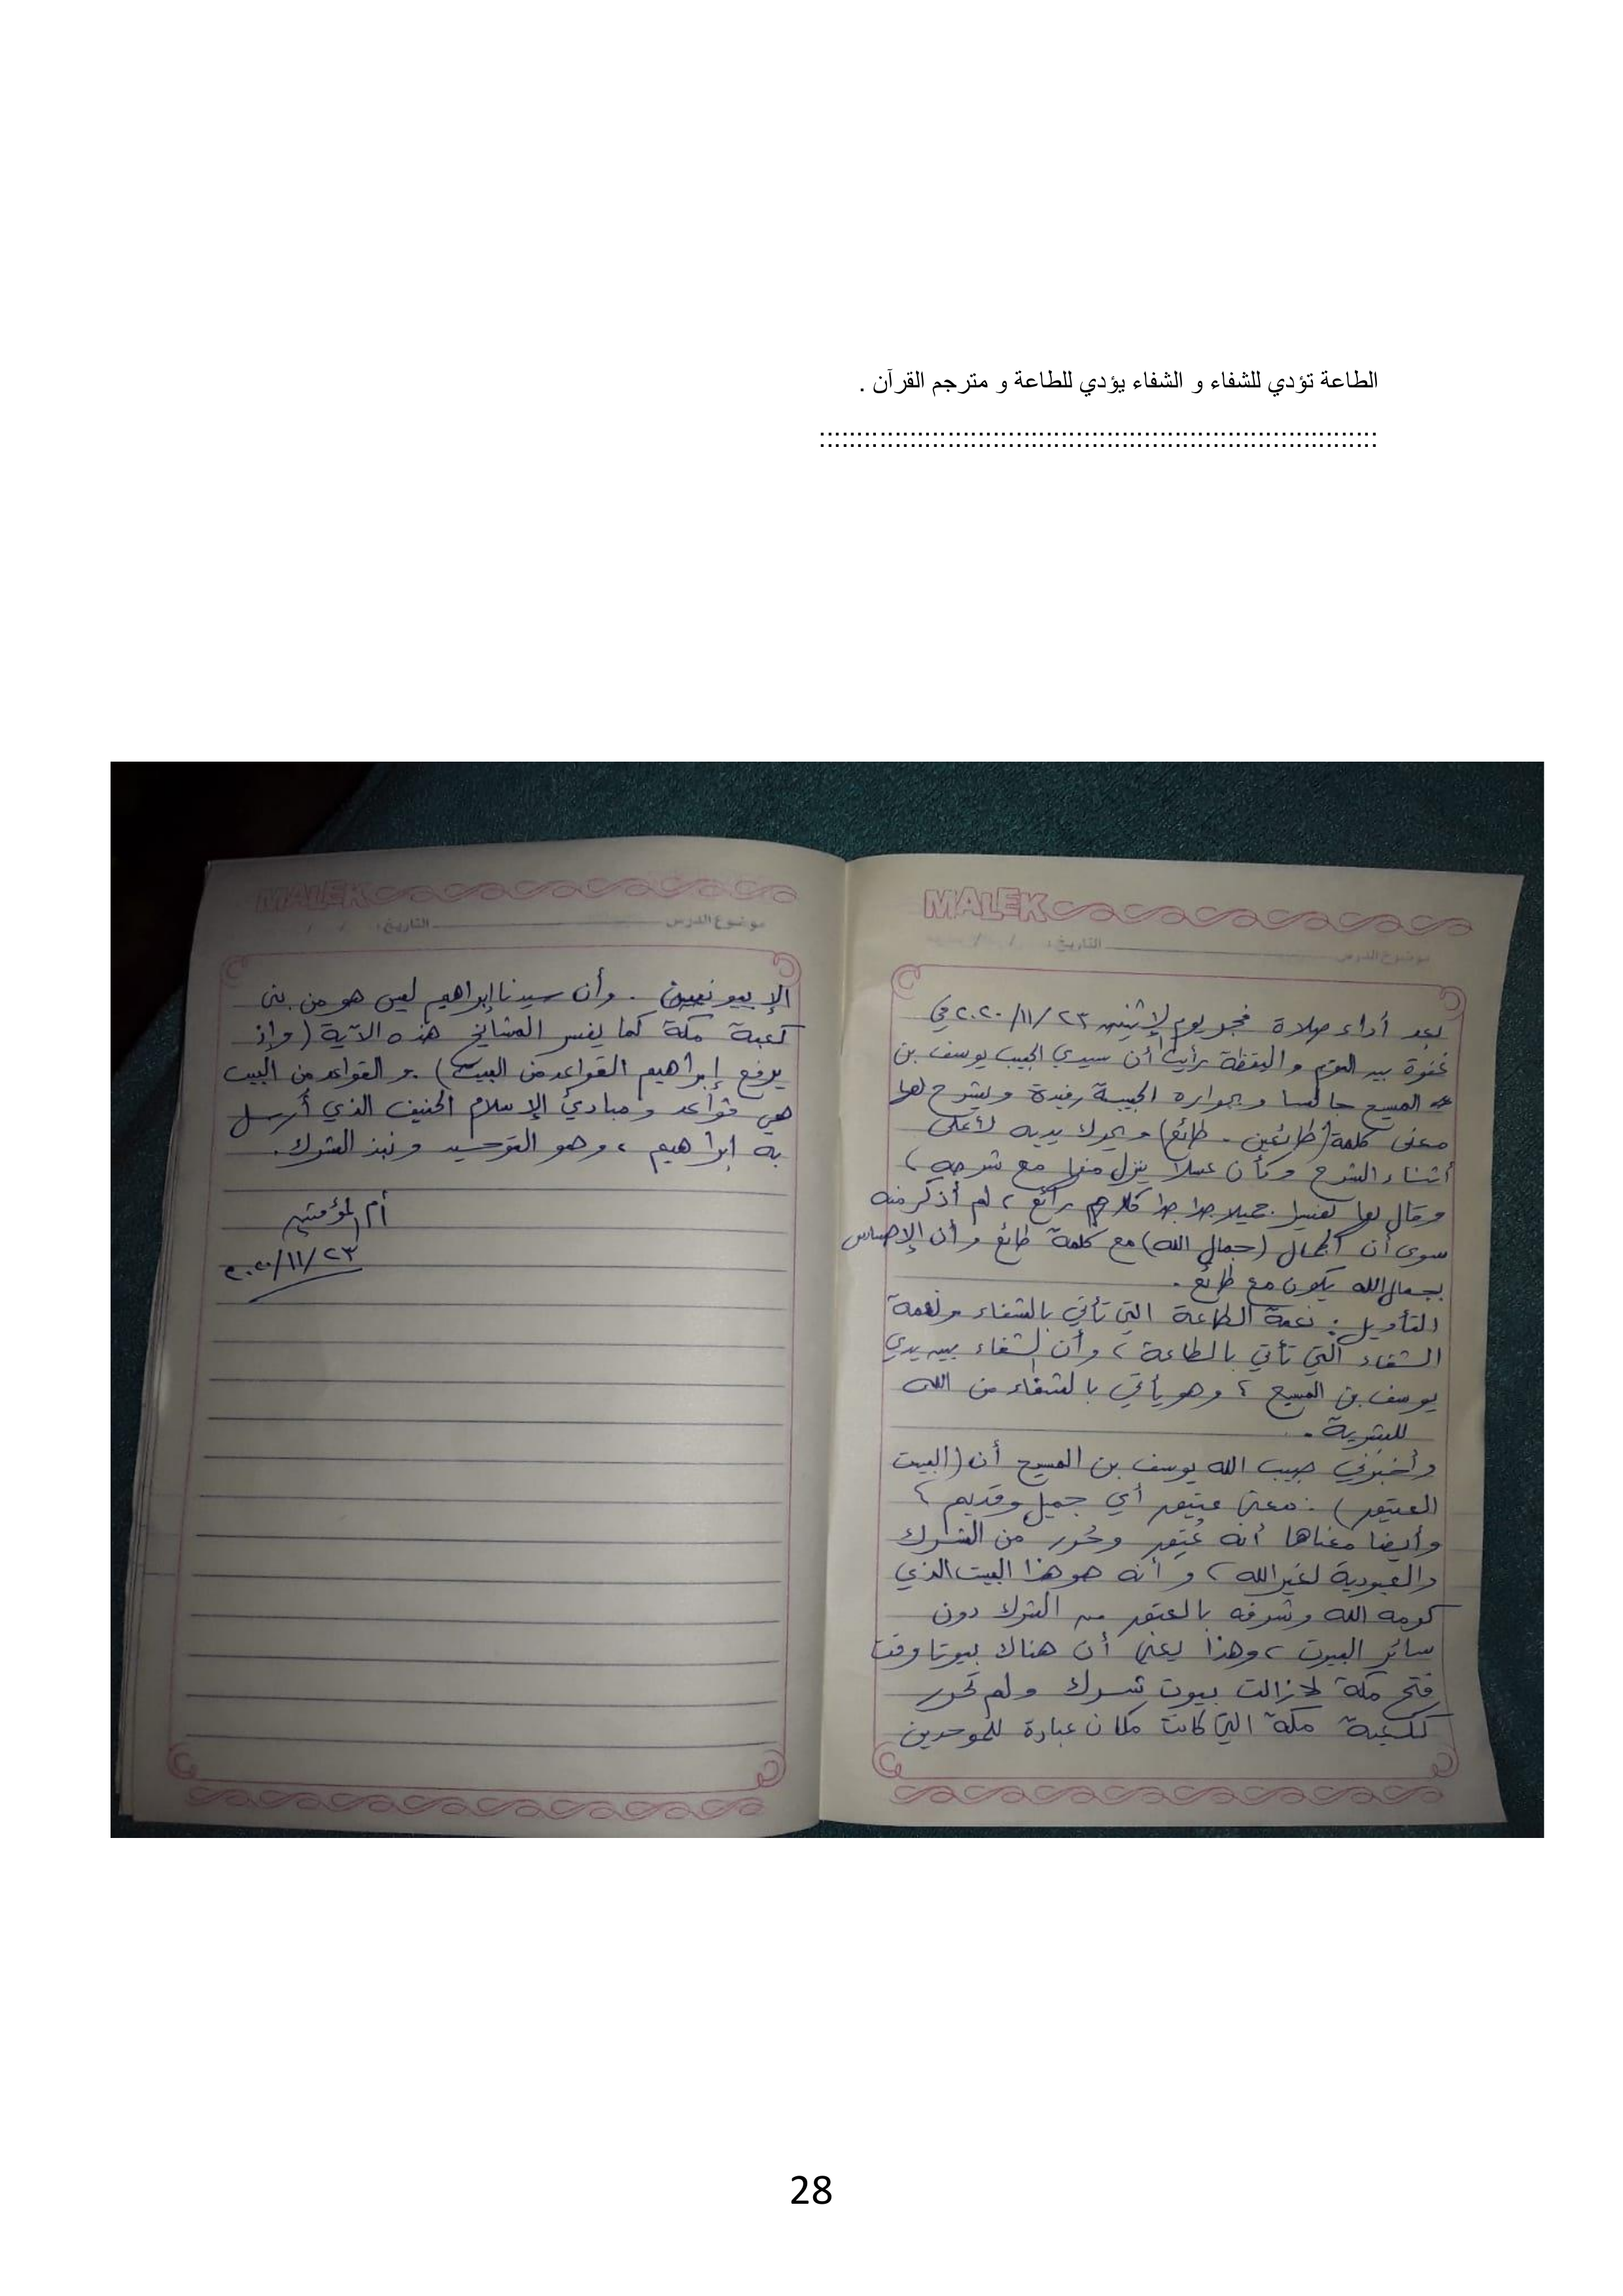 الطاعة تؤدي للشفاء و الشفاء يؤدي للطاعة و مترجم القرآن .
::::::::::::::::::::::::::::::::::::::::::::::::::::::::::::::::::::::::::
MALEK
موضوع الدرس التاريخ: / /
بعد أداء صلاة فجر يوم الإثنين ٢٣/١١/٢٠٢٠ في
غفوة بين النوم واليقظة رأيت أن سيدي الحبيب يوسف بن
المسيح جالسا وبجواره الحبيبة رفيدة ويشرح لها
معنى كلمة (طائعين - طائع) ويحرك يديه لأعلى
أثناء الشرح وكأن عسلا ينزل منها مع شرحه ،
وقال لها تفسيرا جميلا جدا جدا كلاجم رائع ، لم أذكر منه
سوى أن الجمال (جمال الله) مع كلمة طائع وأن الإحساس
بجمال الله يكون مع طائع .
التأويل : نعمة الطاعة التي تأتي بالشفاء ونعمة
الشفاء التي تأتي بالطاعة ، وأن الشفاء بين يدي
يوسف بن المسيح ، وهو يأتي بالشفاء من الله
للبشرية .
وأخبرني حبيب الله يوسف بن المسيح أن (البيت
العتيق) : معنى عتيق أي جميل وقديم ،
وأيضا معناها أنه عُتِق وحُرر من الشرك
والعبودية لغير الله ، وأنه هو هذا البيت الذي
كرمه الله وشرفه بالعتق من الشرك دون
سائر البيوت ، وهذا يعني أن هناك بيوتا وقت
فتح مكة لازالت بيوت شرك ولم تحرر
ككعبة مكة التي كانت مكان عبادة للموحدين
MALEK
موضوع الدرس التاريخ: / /
الإبيونيين . وأن سيدنا إبراهيم ليس هو من بنى
كعبة مكة كما يفسر المشايخ هذه الآية (وإذ
يرفع إبراهيم القواعد من البيت) . والقواعد من البيت
هي قواعد ومبادئ الإسلام الحنيف الذي أرسل
به إبراهيم ، وهو التوحيد ونبذ الشرك .
أم المؤمنين
٢٣/١١/٢٠٢٠
28